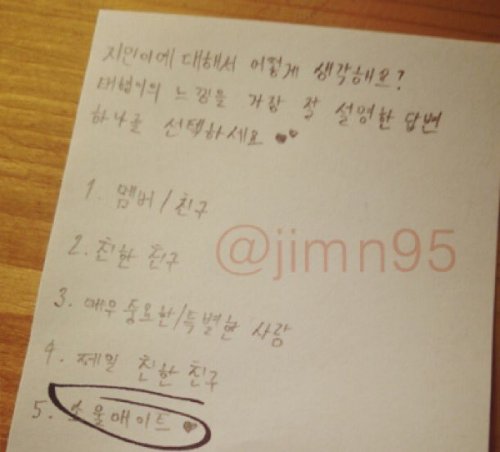 지민이에 대해서 어떻게 생각해요?
태형이의 느낌을 가장 잘 설명한 답변
하나를 선택하세요 ♥♥
1. 멤버/친구
2. 친한 친구
@jimn95
3. 매우 중요한/특별한 사람
4. 제일 친한 친구
5. 소울메이트 ♥